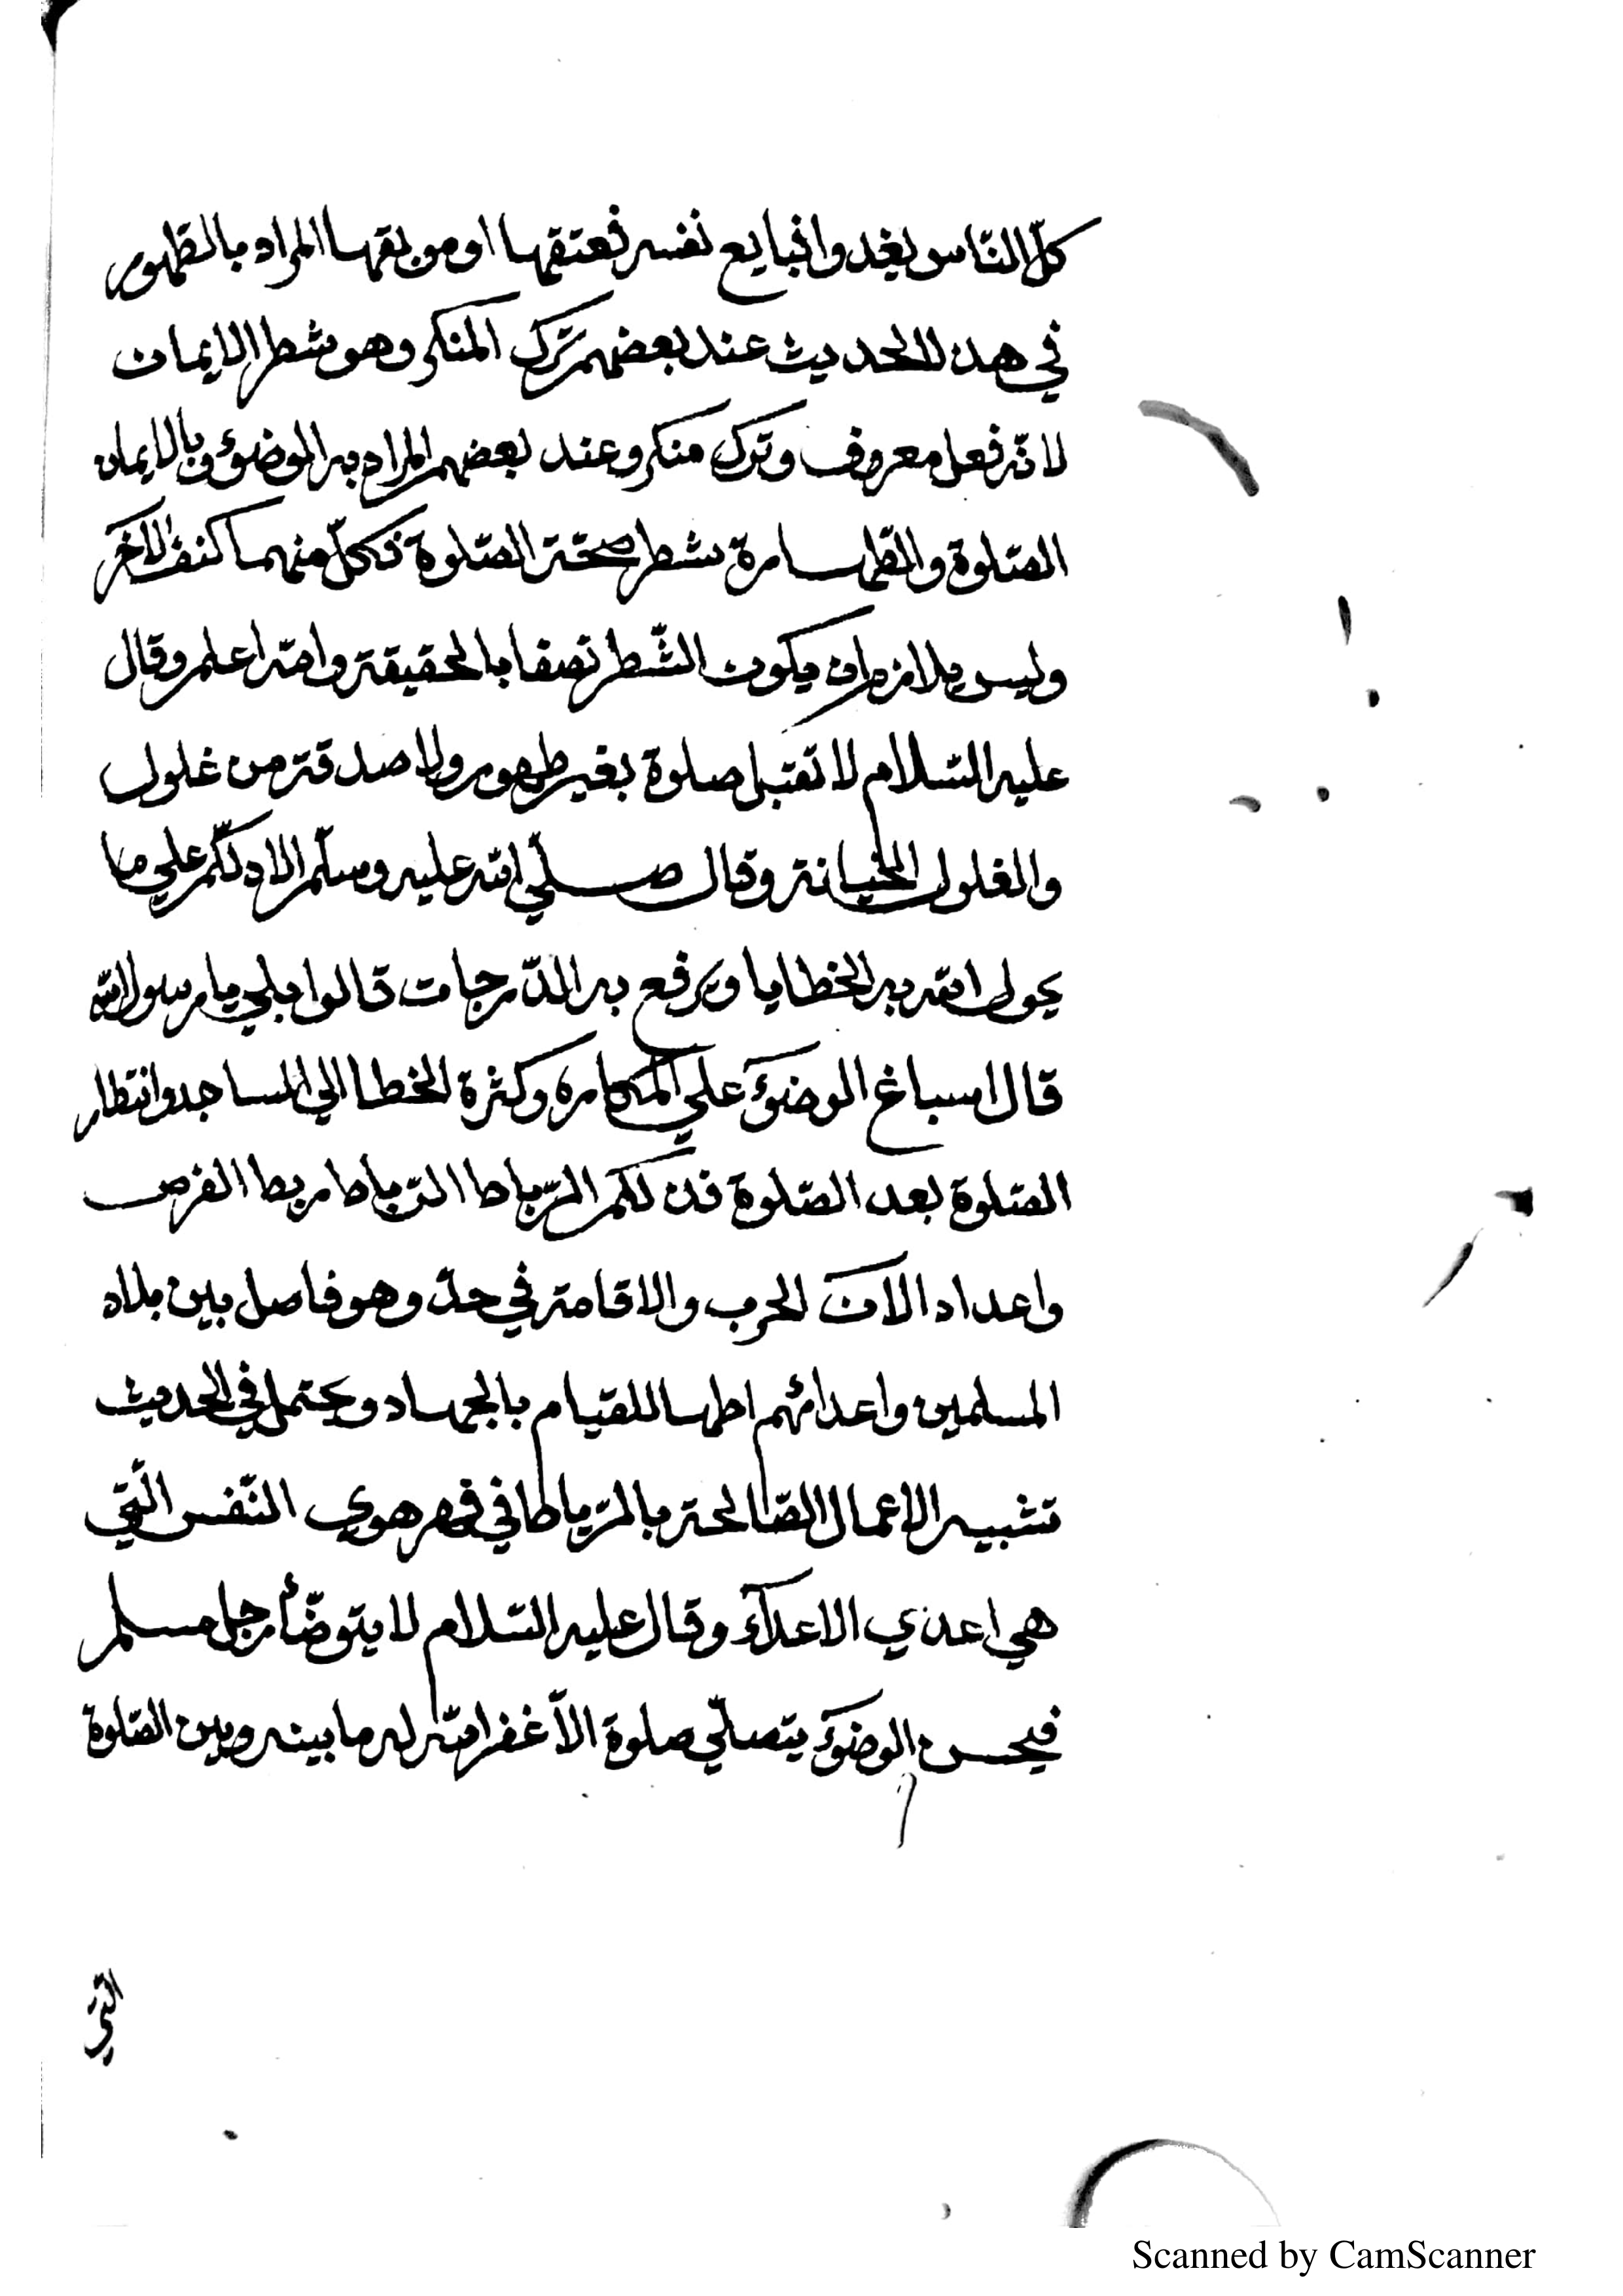 كلّ النّاس يغدوا فبايع نفسه فمعتقها او موبقها المراد بالطّهور
في هذا الحديث عند بعضهم ترك المنكر وهو شطر الايمان
لانّه فعل معروف وترك منكر وعند بعضهم المراد به الوضوء وبالايمان
الصّلوة والطّهارة شطر صحّة الصّلوة فكلّ منهما كنصف الاخر
وليس بلازم ان يكون الشّطر نصفا بالحقيقة والله اعلم وقال
عليه السّلام لا تقبل صلوة بغير طهور ولا صدقة من غلول
والغلول الخيانة وقال صلّي الله عليه وسلّم الا ادلّكم علي ما
يحول الله به الخطايا ويرفع به الدّرجات قالوا بلي يا رسول الله
قال اسباغ الوضوء علي المكاره وكثرة الخطا الي المساجد وانتظار
الصّلوة بعد الصّلوة فذلكم الرّباط الرّباط ربط الفرس
واعداد الات الحرب والاقامة في حدّ وهو فاصل بين بلاد
المسلمين واعدائهم اظهارا للقيام بالجهاد ويحتمل في الحديث
تشبيه الاعمال الصّالحة بالرّباط في قهر هوي النّفس الّتي
هي اعدي الاعدآء وقال عليه السّلام لا يتوضّأ رجل مسلم
فيحسن الوضوء يصلّي صلوة الاّ غفر الله له ما بينه وبين الصّلوة
الّتي
Scanned by CamScanner